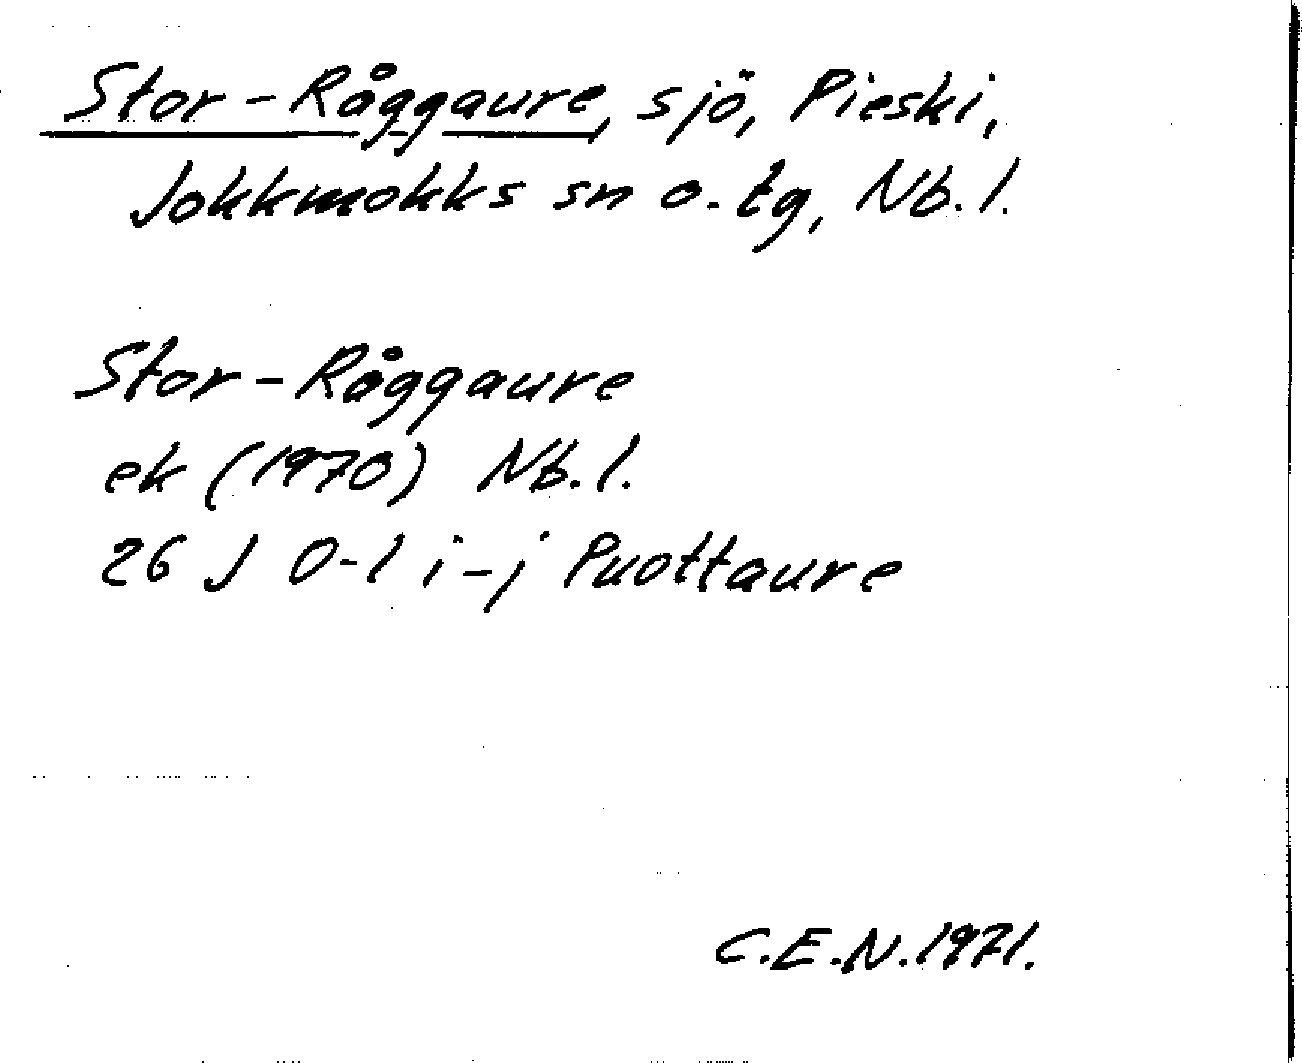 Stor-Råggaure, sjö, Pieski,
Jokkmokks sn o. tg, Nb.l.
Stor-Råggaure
ek (1970) Nb.l.
26 J 0-1 i-j Puottaure
C.E.N. 1971.